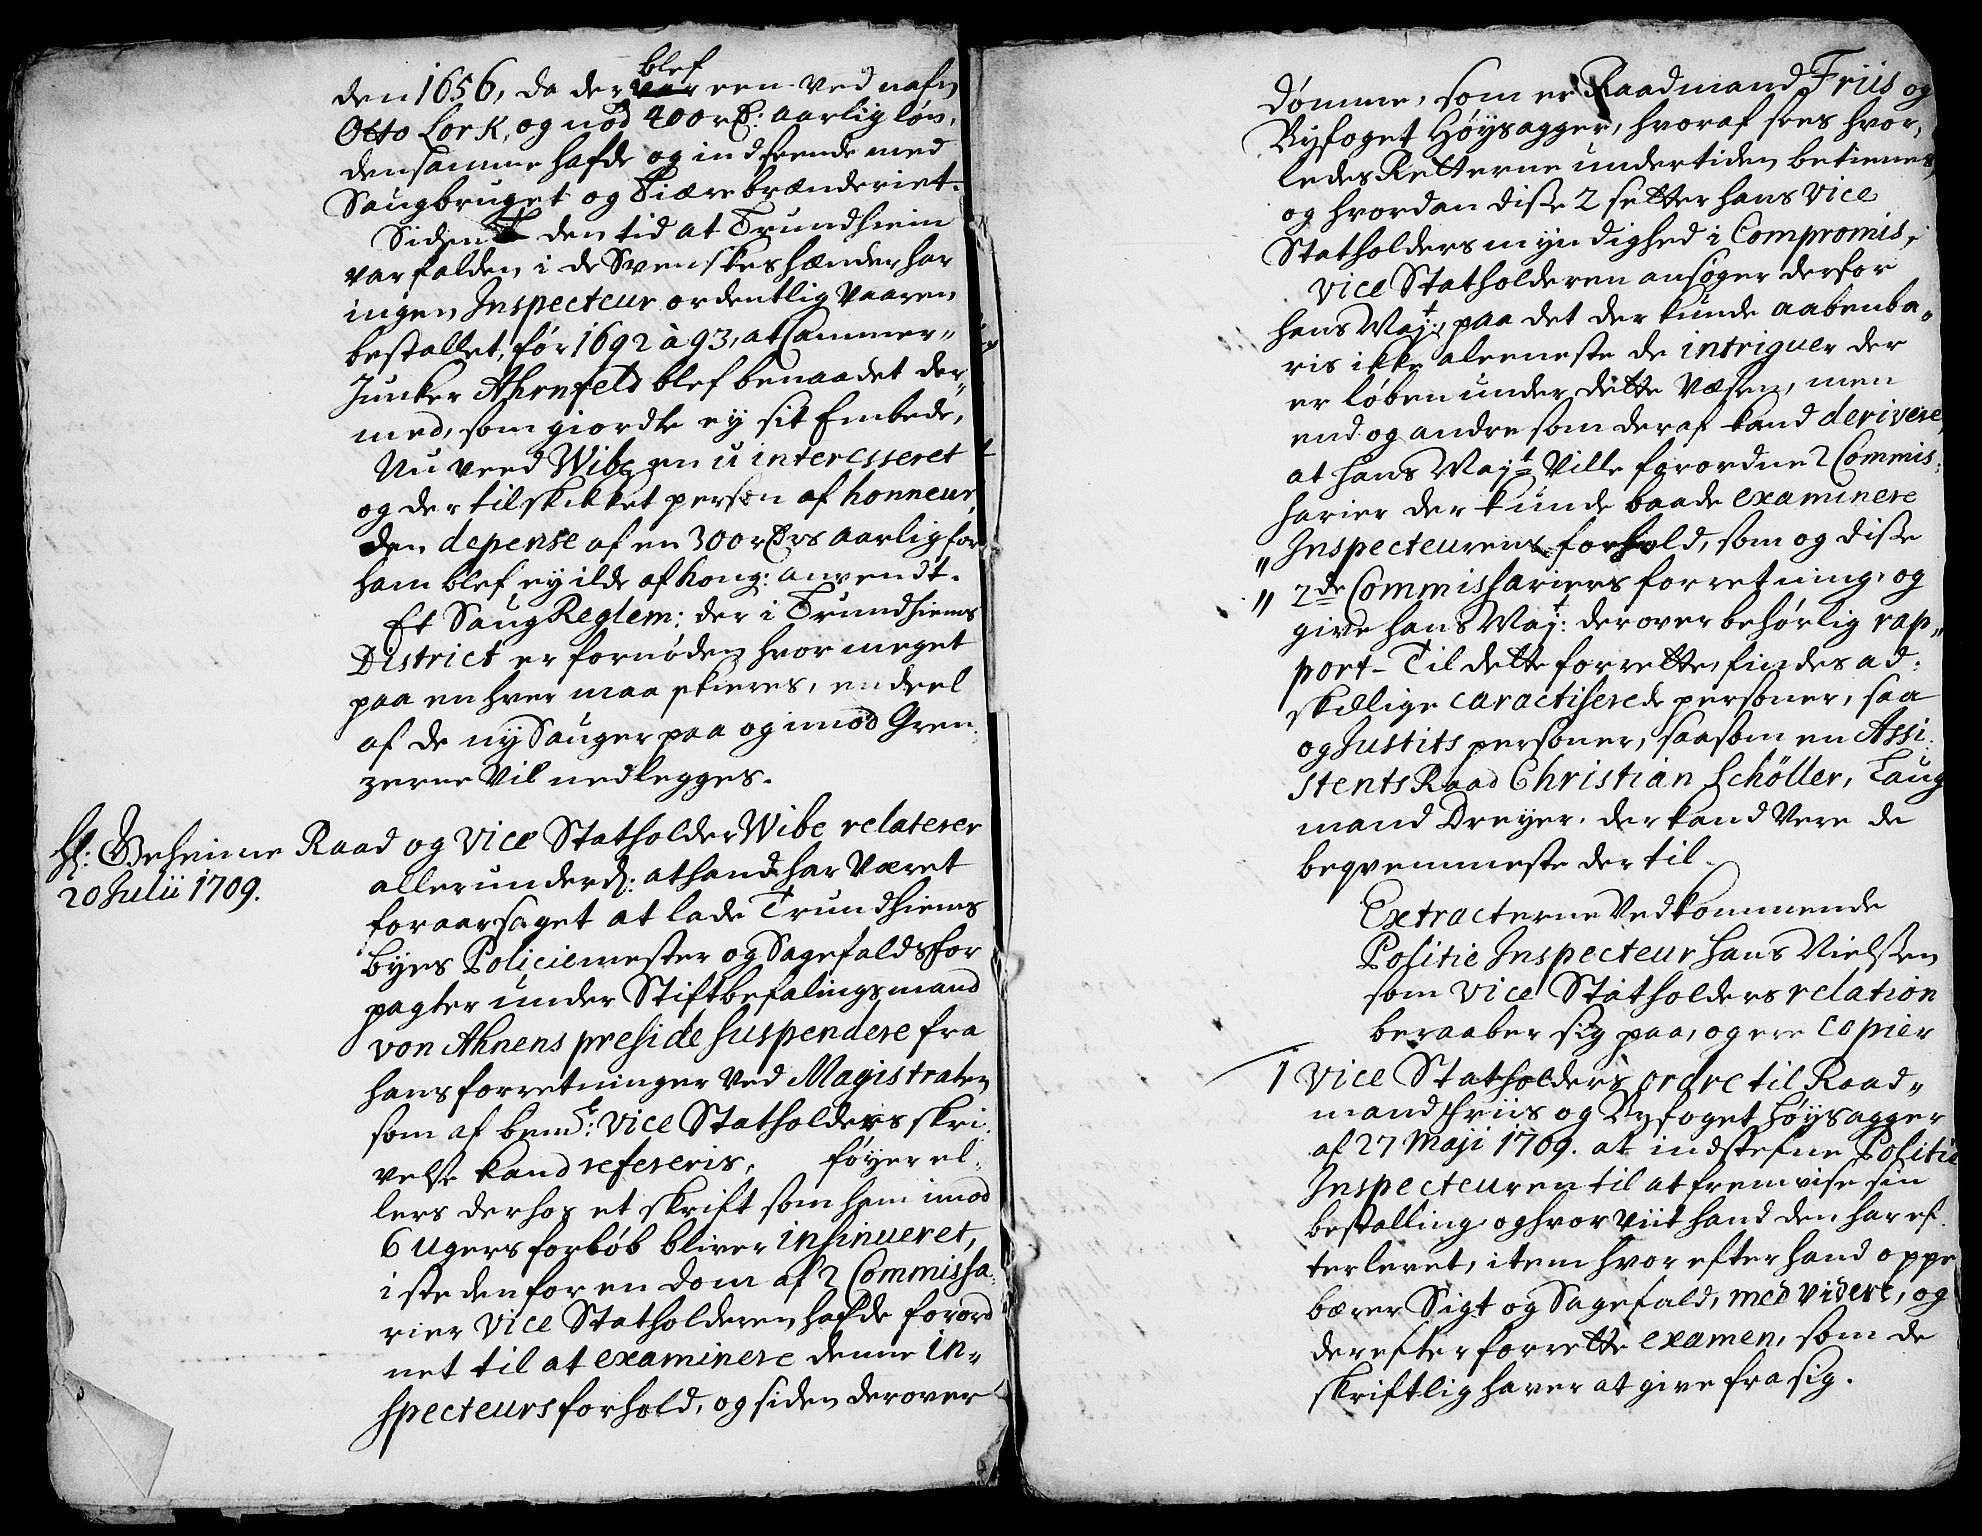 den 1656, da der blef een ved nafn
Otto Lork, og nød 400 rd: aarlig løn,
den samme hafde og indseende med
Saugbruget og Tiærebrænderiet.
Siden den tid at Trundhiem
var falden i de Svenskes hænder har
ingen Inspecteur ordentlig vaaren
bestallet, før 1692 à 93, at Cammer„
Juncker Ahrnfeld blef benaadet der„
med, som giorde ey sit Embede,
Nu veed Wibe en uinteresseret
og der til skikket person af honneur,
den depense af en 300 rdrs aarlig for
ham blef ey ilde af Kong: anvendt.
Et Saug Reglem: der i Trundhiems
District er fornøden hvor meget
paa en hver maa skieres, en deel
af de ny Sauger paa og imod Gren„
zerne vil nedlegges.
H: Geheime Raad og Vice Statholder Wibe relaterer
20 Julii 1709. allerunderd: at hand har været
foraarsaget at lade Trundhiems
Byes Policiemester og Sagefaldsfor
pagter under Stiftbefalingsmand
von Ahnens preside suspendere fra
hans forretninger ved Magistraten
som af bemte: Vice Statholders skri„
velse kand refereris, føyer el„
lers derhos et skrift som ham imod
6 ugers forløb bliver insinueret,
i steden for en dom af 2 Commissa„
rier Vice Statholderen hafde forord
net til at examinere denne In„
specteurs forhold, og siden derover
dømme, som er Raadmand Friis og
Byfoget Høysagger, hvoraf sees hvor„
ledes Retterne undertiden betienes,
og hvordan disse 2 setter hans Vice
Statholders myndighed i Compromis,
Vice Statholderen ansøger derfor
hans Majt:, paa det der kunde aabenba„
ris ikke aleeneste de intriguer der
er løben under dette væsen, men
end og andre som deraf kand derivere,
at hans Majt ville forordne 2 Commis„
sarier der kunde baade examinere
„ Inspecteurens forhold, som og disse
„ 2de Commissariers forretning, og
give hans Majt: derover behørlig rap„
port. Til dette forrette, findes ad„
skillige caractiserede personer, saa
og Justits personer, saasom en Assi„
stents Raad Christian Schöller, Laug
mand Dreyer, der kand vere de
beqvemmeste der til.
Extracterne vedkommende
Politie Inspecteur Hans Nielssen
som Vice Statholders relation
beraaber sig paa, og ere copier
1 Vice Statholders ordre til Raad„
mand Friis og Byfoget Høysagger
af 27 Maji 1709. at indstefne Politie
Inspecteuren til at fremvise sin
bestalling og hvor viit hand den har ef„
terlevet, item hvor efter hand oppe
bærer Sigt og Sagefald, med videre, og
derefter forrette examen, som de
skriftlig haver at give fra sig.